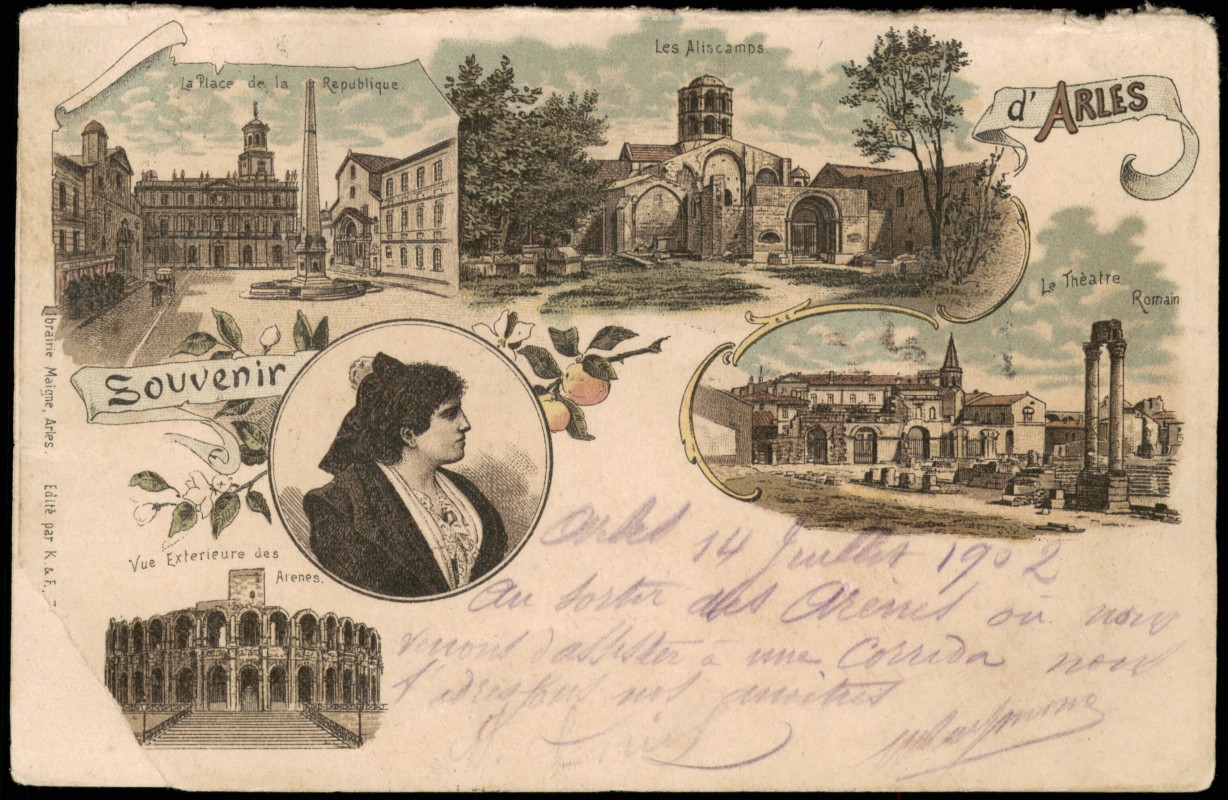 La Place de la Republique.
Les Aliscamps.
d'ARLES
Le Théatre
Romain
Souvenir
Vue Exterieure des
Arenes.
Librairie Maigne, Arles. Edité par K. & F.,
Arles 14 Juillet 1902
Au sortir des Arènes où nous
venons d'assister à une Corrida nous
t'adressons nos amitiés